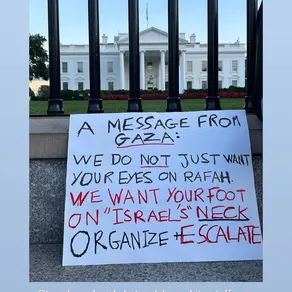 A MESSAGE FROM
GAZA:
WE DO NOT JUST WANT
YOUR EYES ON RAFAH.
WE WANT YOUR FOOT
ON "ISRAEL'S" NECK
ORGANIZE + ESCALATE